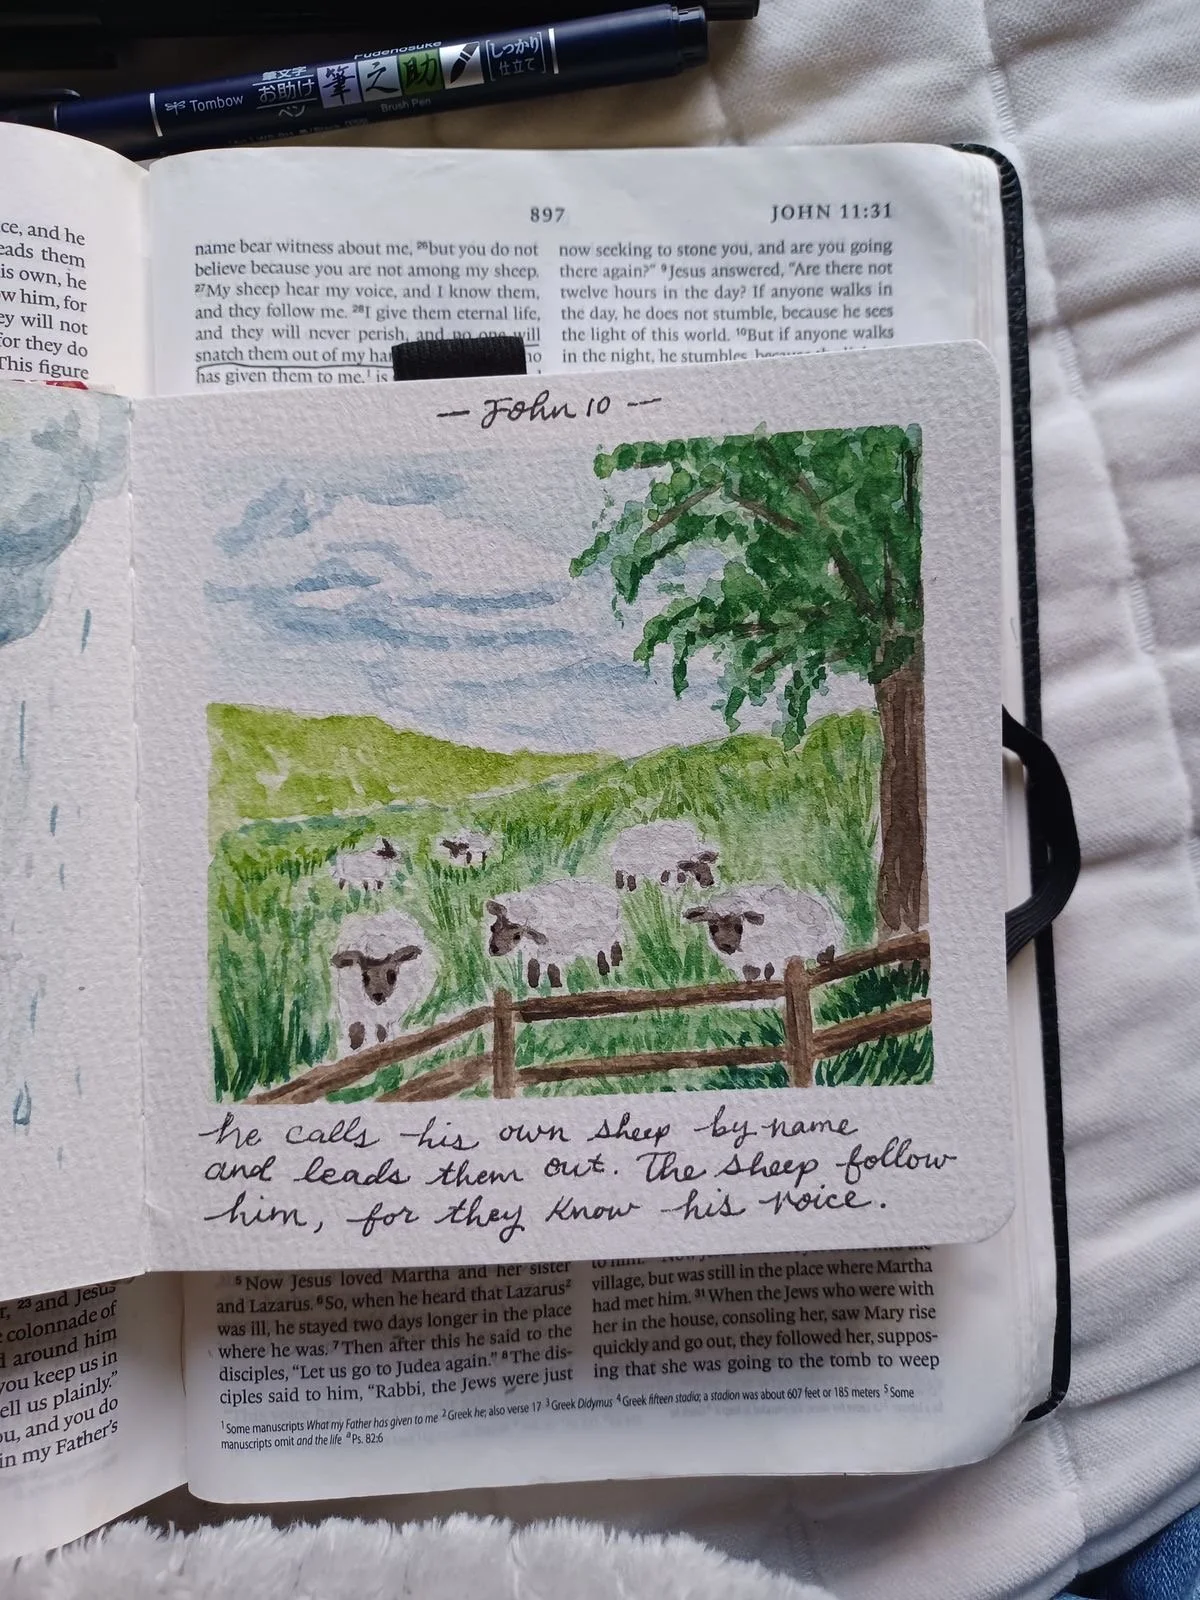 Fudenosuke
Tombow
筆文字
お助け
ペン
筆之助
しっかり
仕立て
Brush Pen
ce, and he
eads them
is own, he
ow him, for
ey will not
for they do
This figure
897
JOHN 11:31
name bear witness about me, ²⁶but you do not
believe because you are not among my sheep.
²⁷My sheep hear my voice, and I know them,
and they follow me. ²⁸I give them eternal life,
and they will never perish, and no one will
snatch them out of my
has given them to me,¹ is
now seeking to stone you, and are you going
there again?” ⁹Jesus answered, “Are there not
twelve hours in the day? If anyone walks in
the day, he does not stumble, because he sees
the light of this world. ¹⁰But if anyone walks
in the night, he stumbles, because
— John 10 —
he calls his own sheep by name
and leads them out. The sheep follow
him, for they know his voice.
²³ and Jesus
colonnade of
around him
you keep us in
ell us plainly.”
ou, and you do
in my Father’s
⁵Now Jesus loved Martha and her sister
and Lazarus. ⁶So, when he heard that Lazarus²
was ill, he stayed two days longer in the place
where he was. ⁷Then after this he said to the
disciples, “Let us go to Judea again.” ⁸The dis-
ciples said to him, “Rabbi, the Jews were just
to him. the
village, but was still in the place where Martha
had met him. ³¹When the Jews who were with
her in the house, consoling her, saw Mary rise
quickly and go out, they followed her, suppos-
ing that she was going to the tomb to weep
¹Some manuscripts What my Father has given to me ²Greek he; also verse 17 ³Greek Didymus ⁴Greek fifteen stadia; a stadion was about 607 feet or 185 meters ⁵Some
manuscripts omit and the life ᵃPs. 82:6